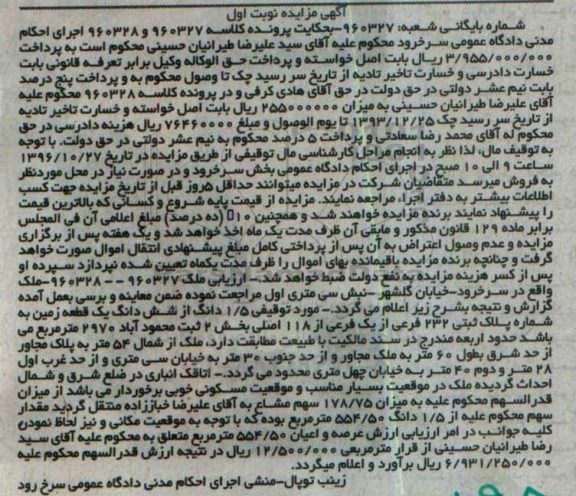 آگهی مزایده نوبت اول
شماره بایگانی شعبه: ۹۶۰۳۲۷-بحکایت پرونده کلاسه ۹۶۰۳۲۷ و ۹۶۰۳۲۸ اجرای احکام
مدنی دادگاه عمومی سرخرود محکوم علیه آقای سید علیرضا طیرانیان حسینی محکوم است به پرداخت
۳/۹۵۵/۰۰۰/۰۰۰ ریال بابت اصل خواسته و پرداخت حق الوکاله وکیل برابر تعرفه قانونی بابت
خسارت دادرسی و خسارت تاخیر تادیه از تاریخ سر رسید چک تا وصول محکوم به و پرداخت پنج درصد
بابت نیم عشر دولتی در حق دولت در حق آقای هادی کرفی و در پرونده کلاسه ۹۶۰۳۲۸ محکوم علیه
آقای علیرضا طیرانیان حسینی به میزان ۲۵۵۰۰۰۰۰۰ ریال بابت اصل خواسته و خسارت تاخیر تادیه
از تاریخ سر رسید چک ۱۳۹۳/۱۲/۲۵ تا یوم الوصول و مبلغ ۷۶۴۶۰۰۰۰ ریال هزینه دادرسی در حق
محکوم له آقای محمد رضا سعادتی و پرداخت ۵ درصد محکوم به نیم عشر دولتی در حق دولت. با توجه
به توقیف مال، لذا نظر به انجام مراحل کارشناسی مال توقیفی از طریق مزایده در تاریخ ۱۳۹۶/۱۰/۲۷
ساعت ۹ الی ۱۰ صبح در اجرای احکام دادگاه عمومی بخش سرخرود و در صورت نیاز در محل موردنظر
به فروش میرسد متقاضیان شرکت در مزایده میتوانند حداقل ۵روز قبل از تاریخ مزایده جهت کسب
اطلاعات بیشتر به دفتر اجرا، مراجعه نمایند. مزایده از قیمت پایه شروع و کسانی که بالاترین قیمت
را پیشنهاد نمایند برنده مزایده خواهند شد و همچنین ۱۰ (ده درصد) مبلغ اعلامی آن فی المجلس
برابر ماده ۱۲۹ قانون مذکور و مابقی آن ظرف مدت یک ماه اخذ خواهد شد و یک هفته پس از برگزاری
مزایده و عدم وصول اعتراض به آن پس از پرداختی کامل مبلغ پیشنهادی انتقال اموال صورت خواهد
گرفت و چنانچه برنده مزایده باقیمانده بهای اموال را ظرف مدت یکماه تعیین شده نپردازد سپرده او
پس از کسر هزینه مزایده به نفع دولت ضبط خواهد شد.- ارزیابی ملک ۹۶۰۳۲۷ -- ۹۶۰۳۲۸-ملک
واقع در سرخرود-خیابان گلشهر-نبش سی متری اول مراجعت نموده ضمن معاینه و برسی بعمل آمده
گزارش و نتیجه بشرح زیر اعلام می گردد.- مورد توقیفی ۱/۵ دانگ از شش دانگ یک قطعه زمین به
شماره پلاک ثبتی ۲۳۲ فرعی از یک فرعی از ۱۱۸ اصلی بخش ۲ ثبت محمودآباد ۲۹۷۰ مترمربع می
باشد حدود اربعه مندرج در سند مالکیت با طبیعت مطابقت دارد، ملک از شمال ۵۴ متر به پلاک مجاور
از حد شرق بطول ۶۰ متر به ملک مجاور و از حد جنوب ۳۰ متر به خیابان سی متری و از حد غرب اول
۲۸ متر و دوم ۴۰ متر به خیابان چهل متری محدود می گردد.- اتاقک انباری در ضلع شرق و شمال
احداث گردیده ملک در موقعیت بسیار مناسب و موقعیت مسکونی خوبی برخوردار می باشد از میزان
قدرالسهم محکوم علیه به میزان ۱۷۸/۷۵ سهم مشاع به آقای علیرضا خبازاده منتقل گردید مقدار
سهم محکوم علیه از ۱/۵ دانگ ۵۵۴/۵۰ مترمربع بوده که با توجه به موقعیت مکانی و نیز لحاظ نمودن
کلیه جوانب در امر ارزیابی ارزش عرصه و اعیان ۵۵۴/۵۰ مترمربع متعلق به محکوم علیه آقای سید
رضا طیرانیان حسینی از قرار مترمربعی ۱۲/۵۰۰/۰۰۰ ریال در نتیجه ارزش قدرالسهم محکوم علیه
۶/۹۳۱/۲۵۰/۰۰۰ ریال برآورد و اعلام میگردد.
زینب توپال-منشی اجرای احکام مدنی دادگاه عمومی سرخ رود